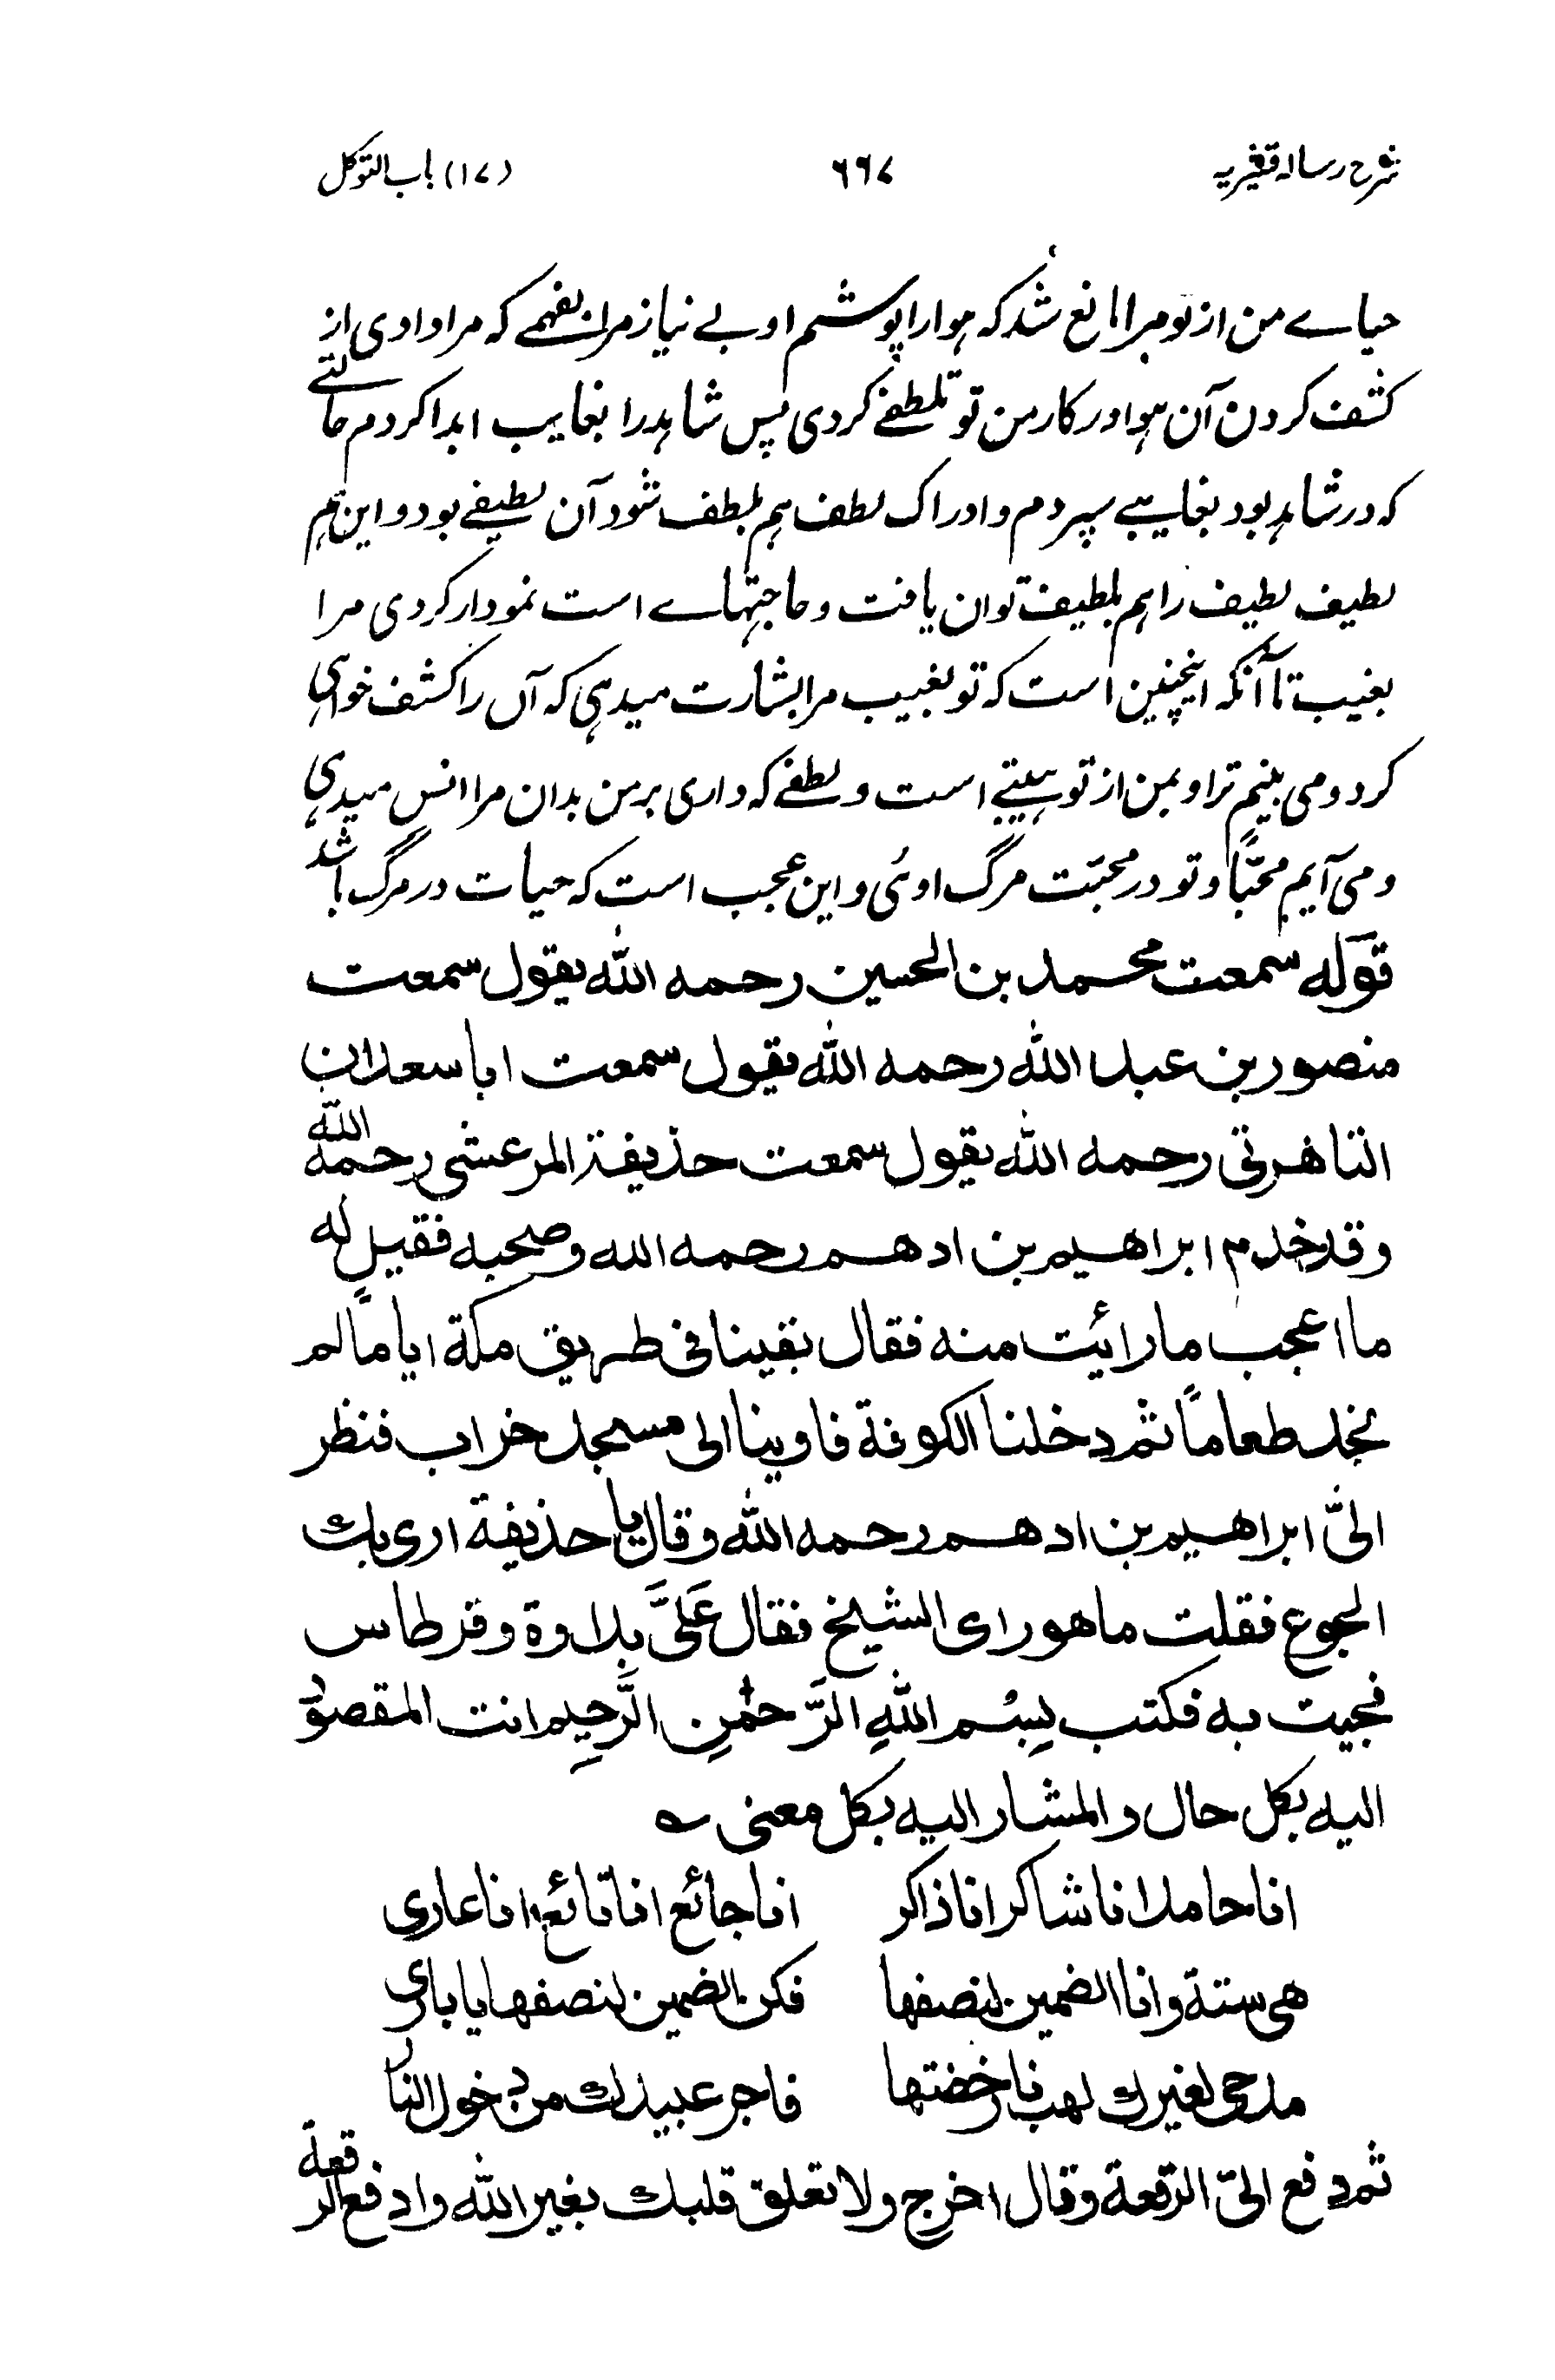 شرح رسالہ قشیریہ ۶۶۷ (۱۷) باب التوکل
حیاے من از تو مرا مانع شد که هوا را پوشم او بے نیاز مرا بفهمے که مرا دادی از
کشف کردن آن هوا در کار من تو تلطفے کردی پس شاہد را بغایب ابدا کردم حالتے
که در شاہد بود بغایبے سپردم و ادراک لطف ہم بلطف شود آن لطیفے بود و این ہم
لطیف لطیف را ہم بلطیف توان یافت و حاجتہاے است نمودار کردی مرا
بغیب تا آنکه اینچنین است که تو بغیب مرا بشارت میدہی که آں را کشف خواہی
کرد و می بینم ترا و بمن از تو ہیبتے است و لطفے که داری بر من بدان مرا انس میدہی
و می آیم محبّاً و تو در محبّت مرگ اوئی و این عجب است که حیات در مرگ باشد
قوله سمعت محمد بن الحسین رحمه الله یقول سمعت
منصور بن عبد الله رحمه الله یقول سمعت ابا سعدان
التاهرتی رحمه الله یقول سمعت حذیفة المرعشی رحمه الله
وقد خدم ابراهیم بن ادهم رحمه الله وصحبه فقیل له
ما اعجب ما رائیت منه فقال بقینا فی طریق مکة ایاماً لم
نجد طعاماً ثم دخلنا الکوفة فاوینا الی مسجد خراب فنظر
الیّ ابراهیم بن ادهم رحمه الله وقال یا حذیفة اری بك
الجوع فقلت ما هو رای الشیخ فقال عَلَیَّ بدواة وقرطاس
فجیت به فکتب بِسْم اللهِ الرَّحمٰنِ الرَّحِیم انت المقصود
الیه بکل حال والمشار الیه بکل معنی ؎
انا حامد انا شاکر انا ذاکر انا جائع انا نائع انا عاری
هی ستة وانا الضمین لنصفها فکن الضمین لنصفها یا باری
مدحی لغیرك لهب نار خضتها فاجر عبیدك من دخول النار
ثم دفع الیّ الرقعة وقال اخرج ولا تعلق قلبك بغیر الله وادفع الرقعة